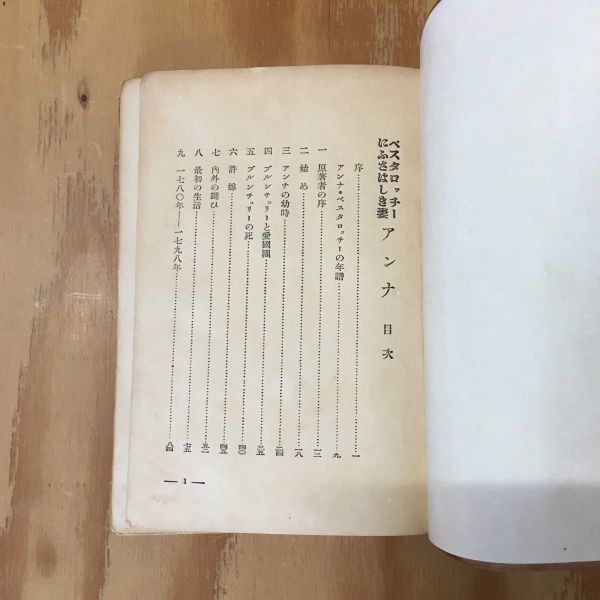 ペスタロッチー
にふさはしき妻
アンナ 目次
序……一
アンナ・ペスタロッチーの年譜……九
一 原著者の序……一三
二 始め……一八
三 アンナの幼時……二四
四 ブルンチュリーと愛國團……三五
五 ブルンチュリーの死……四〇
六 許嫁……四五
七 内外の鬪ひ……五二
八 最初の生活……七五
九 一七八〇年——一七九八年……八四
— 1 —